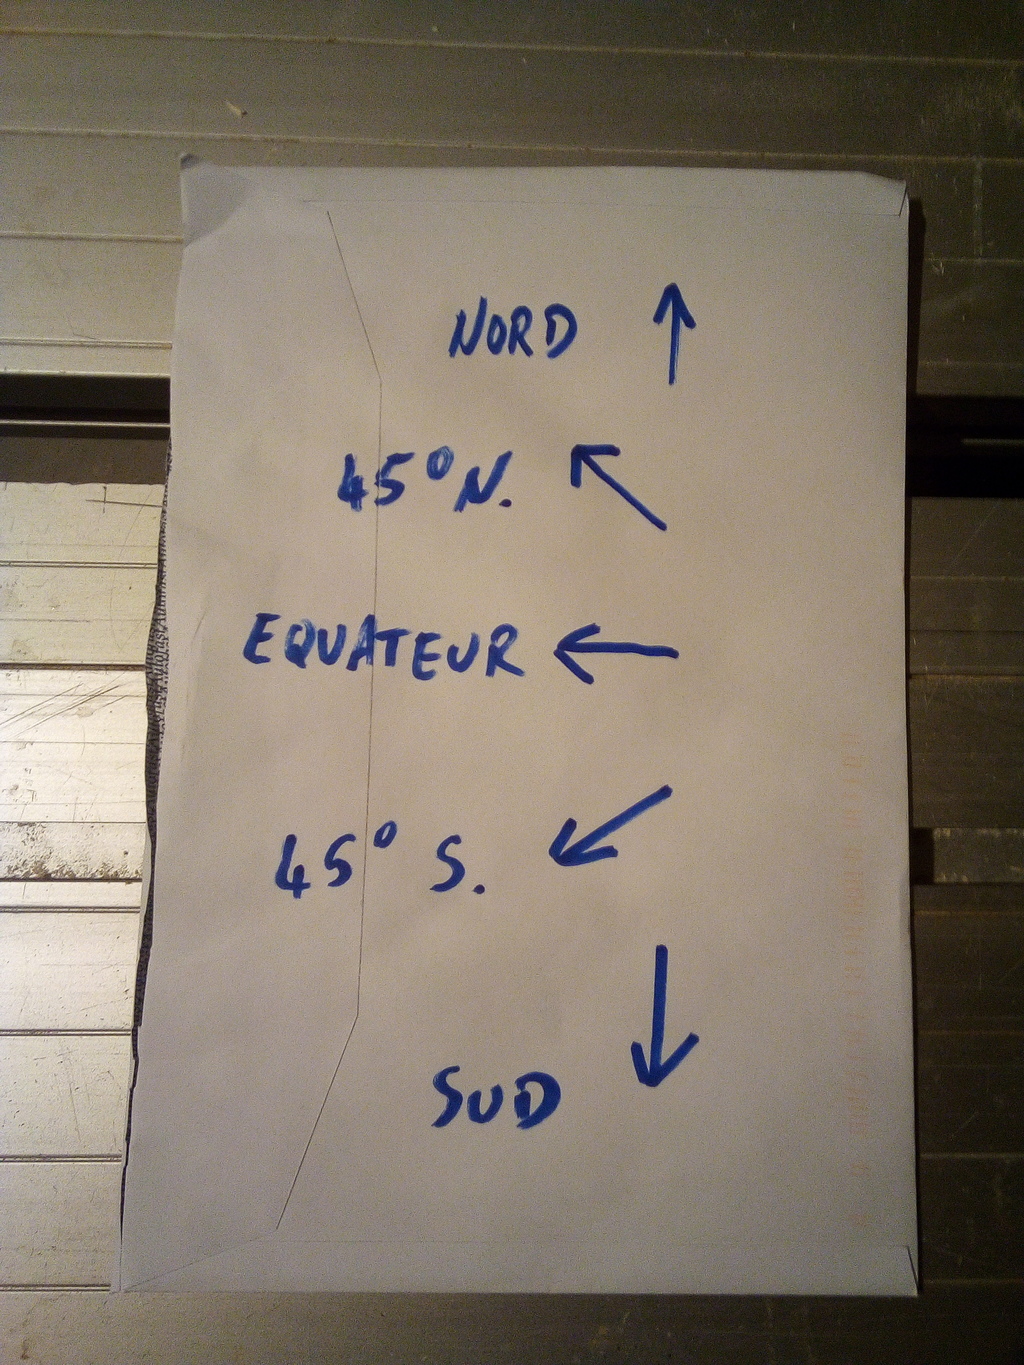 NORD ↑
45°N. ↖
EQUATEUR ←
45° S. ↙
SUD ↓